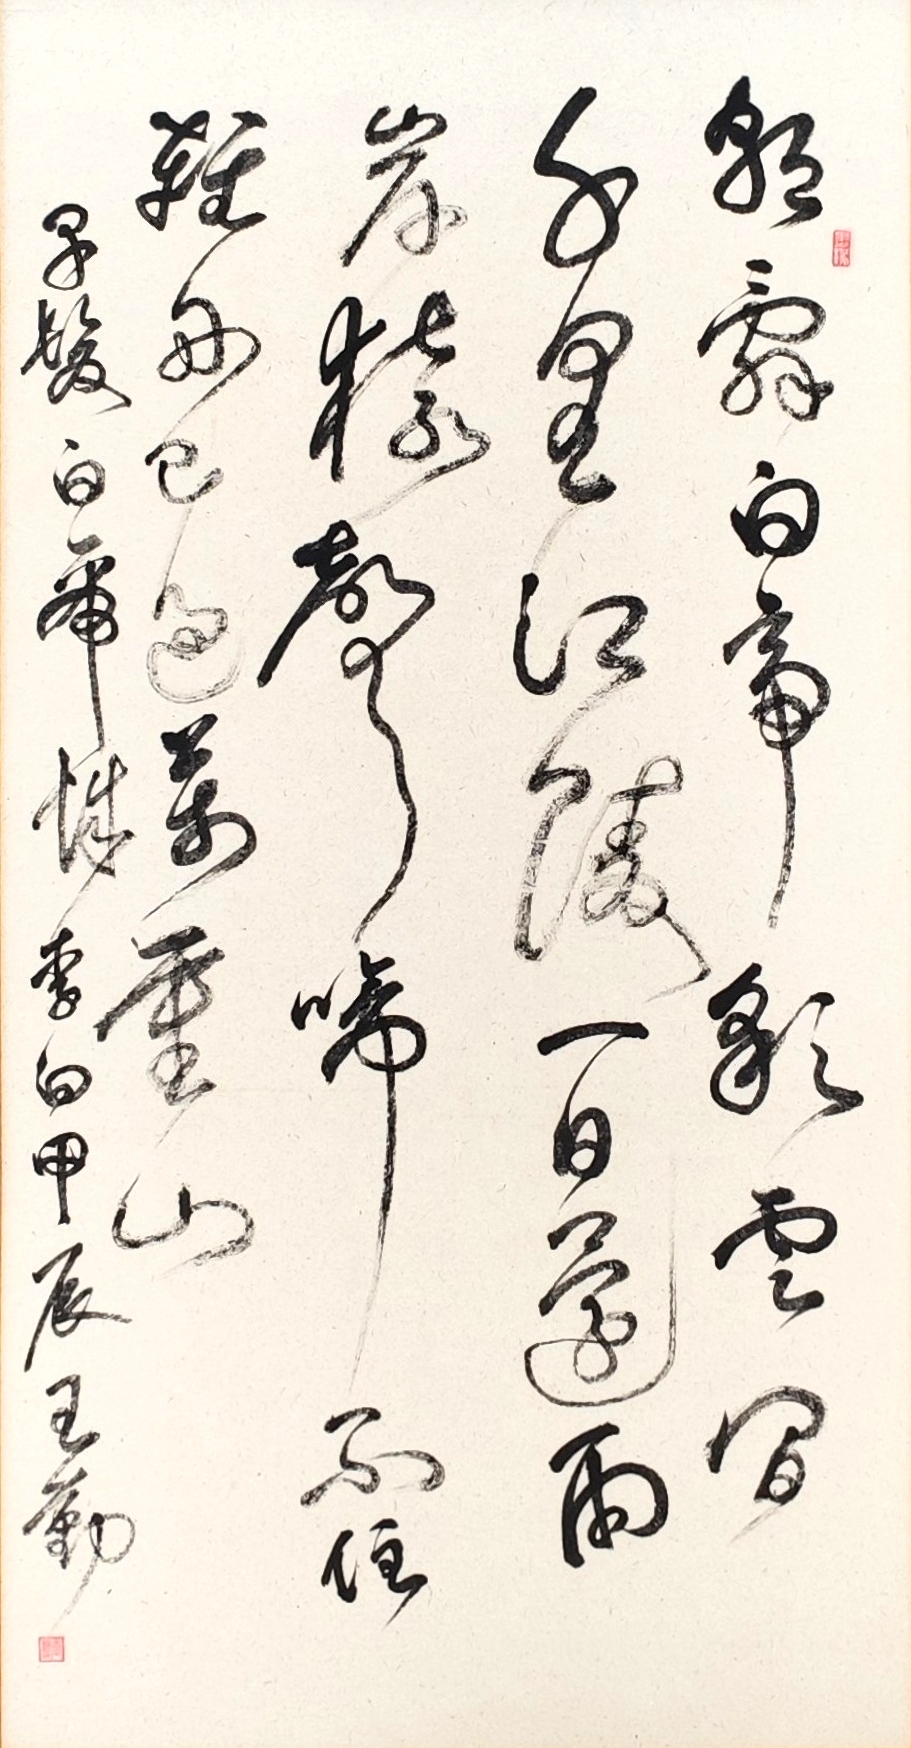 朝辭白帝彩雲間
千里江陵一日還兩
岸猿聲啼不住
輕舟已過萬重山
早發白帝城李白甲辰王勤